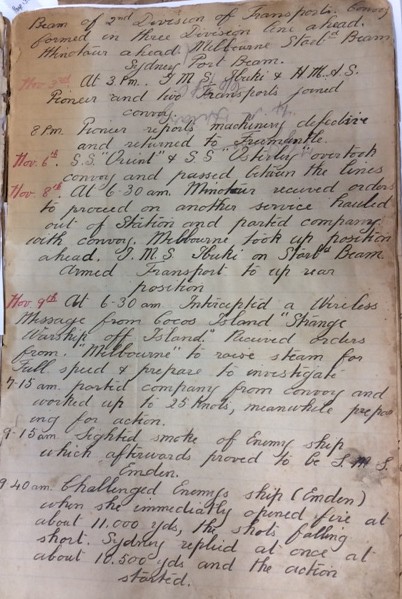 Beam of 2nd Division of Transports. Convoy
formed in three Division line ahead.
Minotaur ahead. Melbourne Starbd Beam
Sydney Port Beam.
Nov. 3rd At 3 Pm. I.M.S. Ibuki & H.M.A.S.
Pioneer and two Transports joined
convoy
8 Pm. Pioneer reports machinery defective
and returned to Fremantle.
Nov. 6th S.S. "Orient" & S.S "Osterley" overtook
convoy and passed between the lines
Nov. 8th At 6-30 am. Minotaur received orders
to proceed on another service hauled
out of Station and parted company
with convoy. Melbourne took up position
ahead. I.M.S Ibuki on Starbd Beam.
Armed Transport to up rear
position
Nov. 9th At 6-30 am Intercepted a Wireless
Message from Cocos Island "Strange
Warship off Island." Received orders
from "Melbourne" to raise steam for
Full speed & prepare to investigate
7-15 am. parted company from convoy and
worked up to 25 Knots, meanwhile prepar
ing for action.
9-15 am Sighted smoke of Enemy ship
which afterwards proved to be S.M.S.
Emden.
9 40 am. Challenged Enemys ship (Emden)
when she immediatly opened fire at
about 11.000 yds, the shots falling
short. Sydney replied at once at
about 10.500 yds and the action
started.